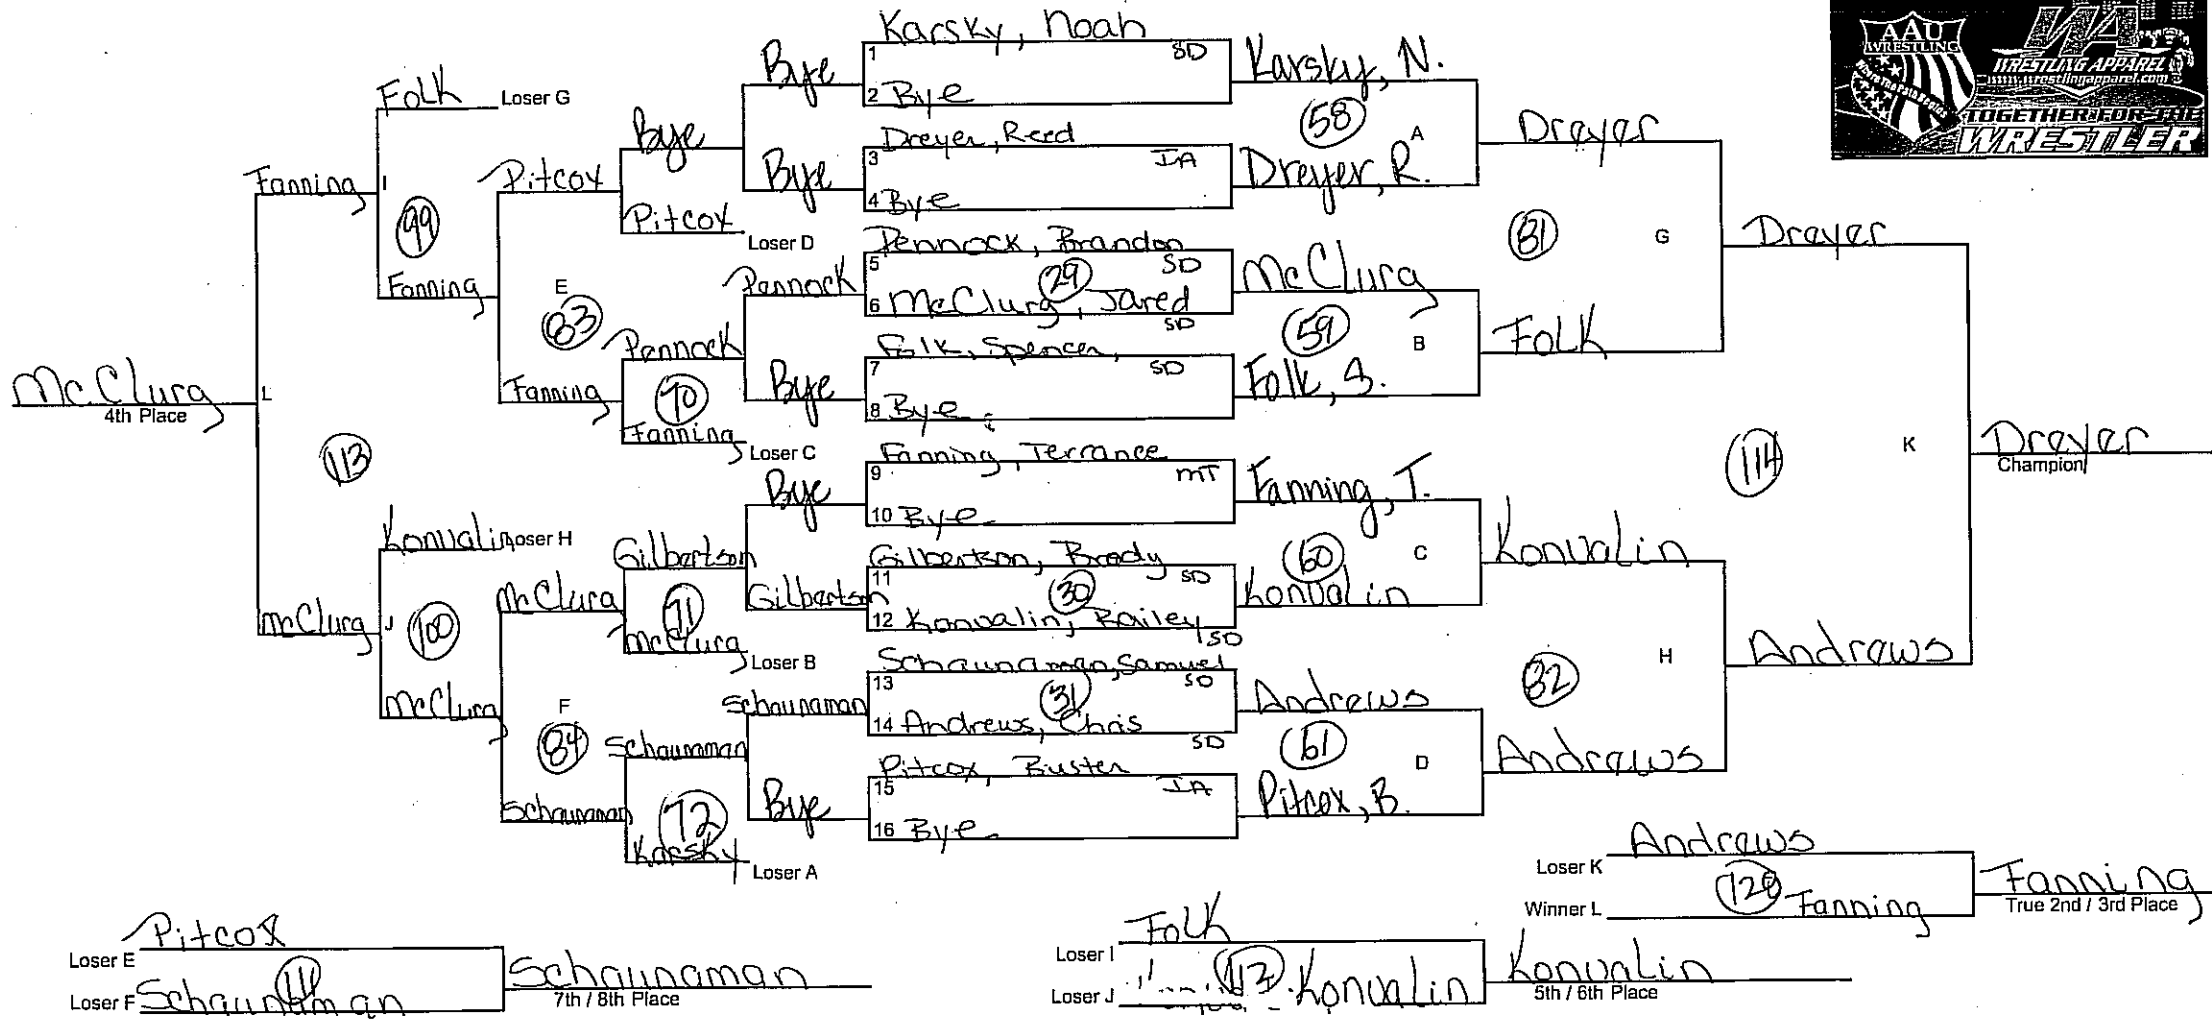 AAU
WRESTLING
WA
WRESTLING APPAREL
www.wrestlingapparel.com
TOGETHER FOR THE
WRESTLER
Karsky, Noah
1 SD
2 Bye
Dreyer, Reed
3 IA
4 Bye
Pennock, Brandon
5 SD
29
6 McClurg, Jared
SD
Folk, Spencer,
7 SD
8 Bye
Fanning, Terrance
9 MT
10 Bye
Gilbertson, Brody
11 SD
30
12 Konvalin, Bailey SD
Schaunaman, Samuel
13 SD
31
14 Andrews, Chris
SD
Pitcox, Buster
15 IA
16 Bye
Karsky, N.
58 A
Dreyer, R.
McClurg
59 B
Folk, S.
Fanning, T.
60 C
Konvalin
Andrews
61 D
Pitcox, B.
Dreyer
81 G
Folk
Konvalin
82 H
Andrews
Dreyer
114 K
Andrews
Dreyer
Champion
Bye
Bye
Pennock
Bye
Bye
Gilbertson
Schaunaman
Bye
Bye
Pitcox
Loser D
Pennock
70
Fanning
Loser C
Gilbertson
71
McClurg
Loser B
Schaunaman
72
Karsky
Loser A
Pitcox
E
83
Fanning
McClurg
F
84
Schaunaman
Folk Loser G
I
99
Fanning
Konvalin Loser H
J
100
McClurg
Fanning
L
113
McClurg
McClurg
4th Place
Pitcox
Loser E
111
Loser F Schaunaman
Schaunaman
7th / 8th Place
Folk
Loser I
112
Loser J Konvalin
Konvalin
5th / 6th Place
Andrews
Loser K
Winner L Fanning
Fanning
True 2nd / 3rd Place